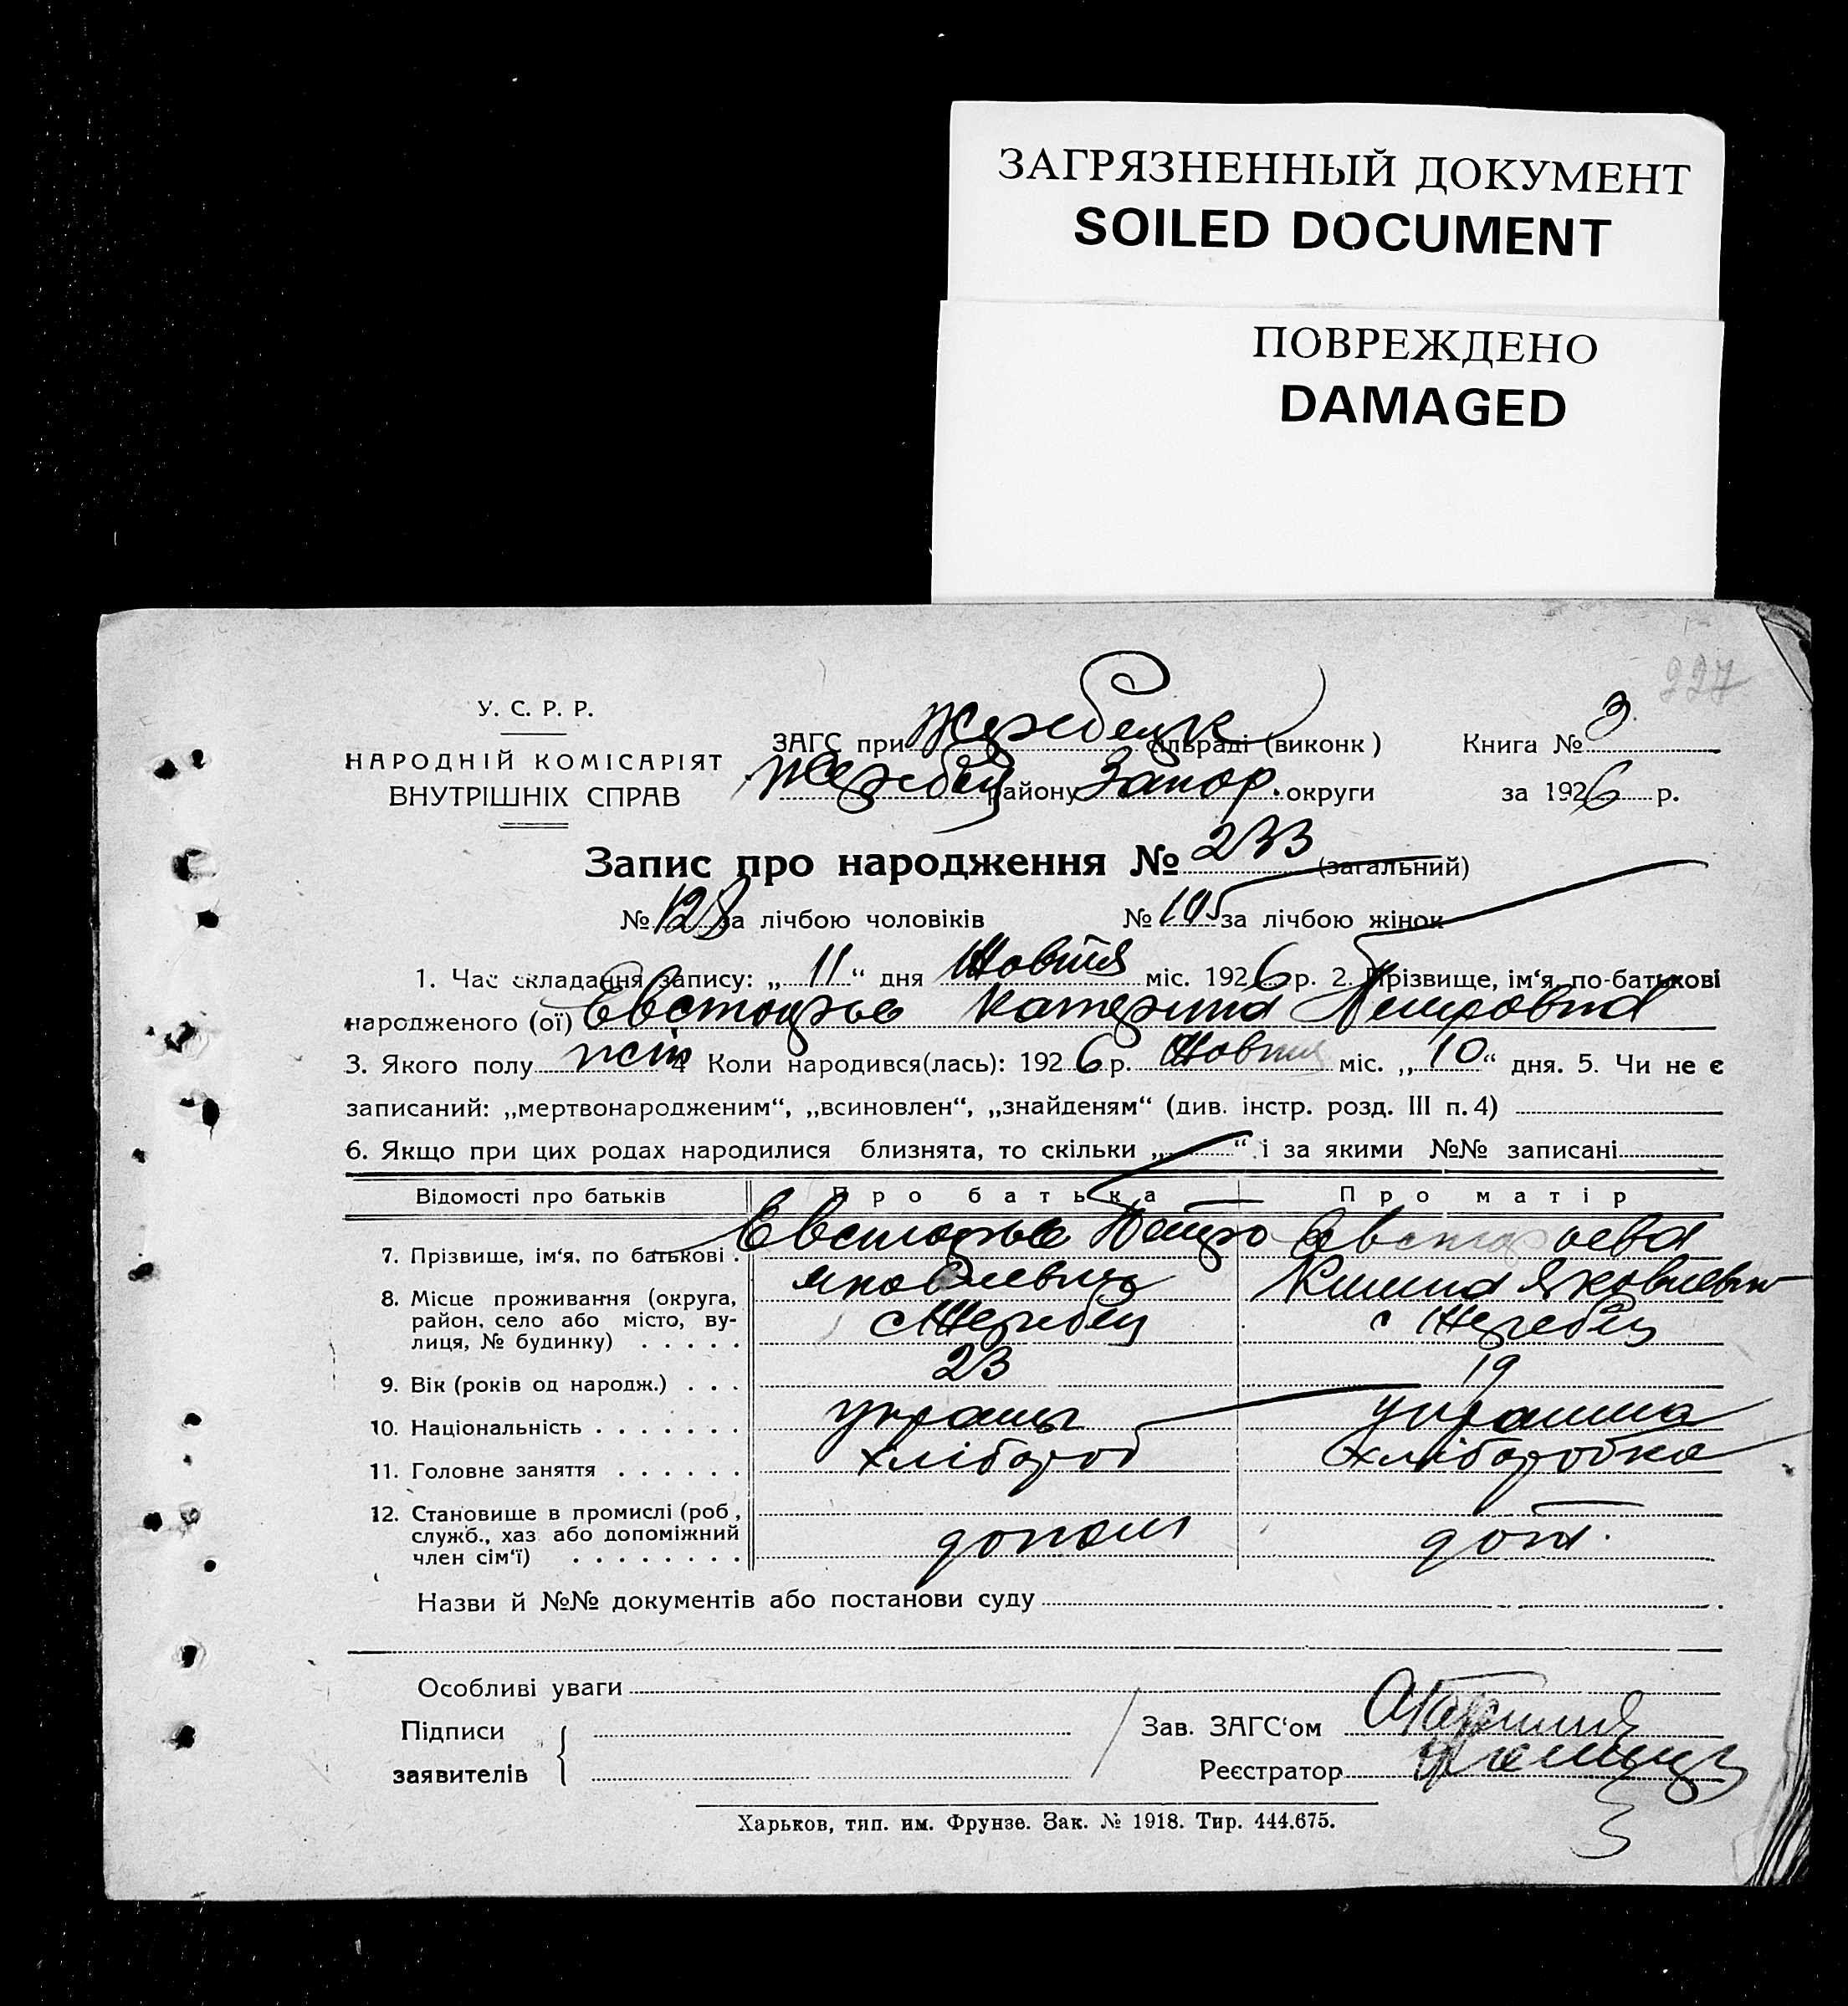 ЗАГРЯЗНЕННЫЙ ДОКУМЕНТ
SOILED DOCUMENT
ПОВРЕЖДЕНО
DAMAGED
227
У. С. Р. Р.
НАРОДНІЙ КОМІСАРІЯТ
ВНУТРІШНІХ СПРАВ
ЗАГС при сільраді (виконк) Книга № 3
району Запор. округи за 1926 р.
Запис про народження № 233 (загальний)
№ 128 за лічбою чоловіків № 105 за лічбою жінок
1. Час складання запису: „ 11 “ дня Жовтня міс. 1926 р. 2. Прізвище, ім‘я, по-батькові
народженого (ої) Катерина Петровна
3. Якого полу жін 4 Коли народився(лась): 1926 р. Жовтня міс. „ 10 “ дня. 5. Чи не є
записаний: „мертвонародженим“, „всиновлен“, „знайденям“ (див. інстр. розд. III п. 4)
6. Якщо при цих родах народилися близнята, то скільки „ “ і за якими №№ записані
Відомості про батьків Про батька Про матір
7. Прізвище, ім‘я, по батькові . Петро
Яковлевна
8. Місце проживання (округа,
район, село або місто, ву-
лиця, № будинку) . . . . . с Жеребец с Жеребец
9. Вік (років од народж.) . . . 23 19
10. Національність . . . . . . .
11. Головне заняття . . . . . . хлібороб хліборобка
12. Становище в промислі (роб,
служб., хаз або допоміжний
член сім‘ї) . . . . . . . . допом доп.
Назви й №№ документів або постанови суду
Особливі уваги
Підписи
заявителів
Зав. ЗАГС‘ом
Реєстратор
Харьков, тип. им. Фрунзе. Зак. № 1918. Тир. 444.675.